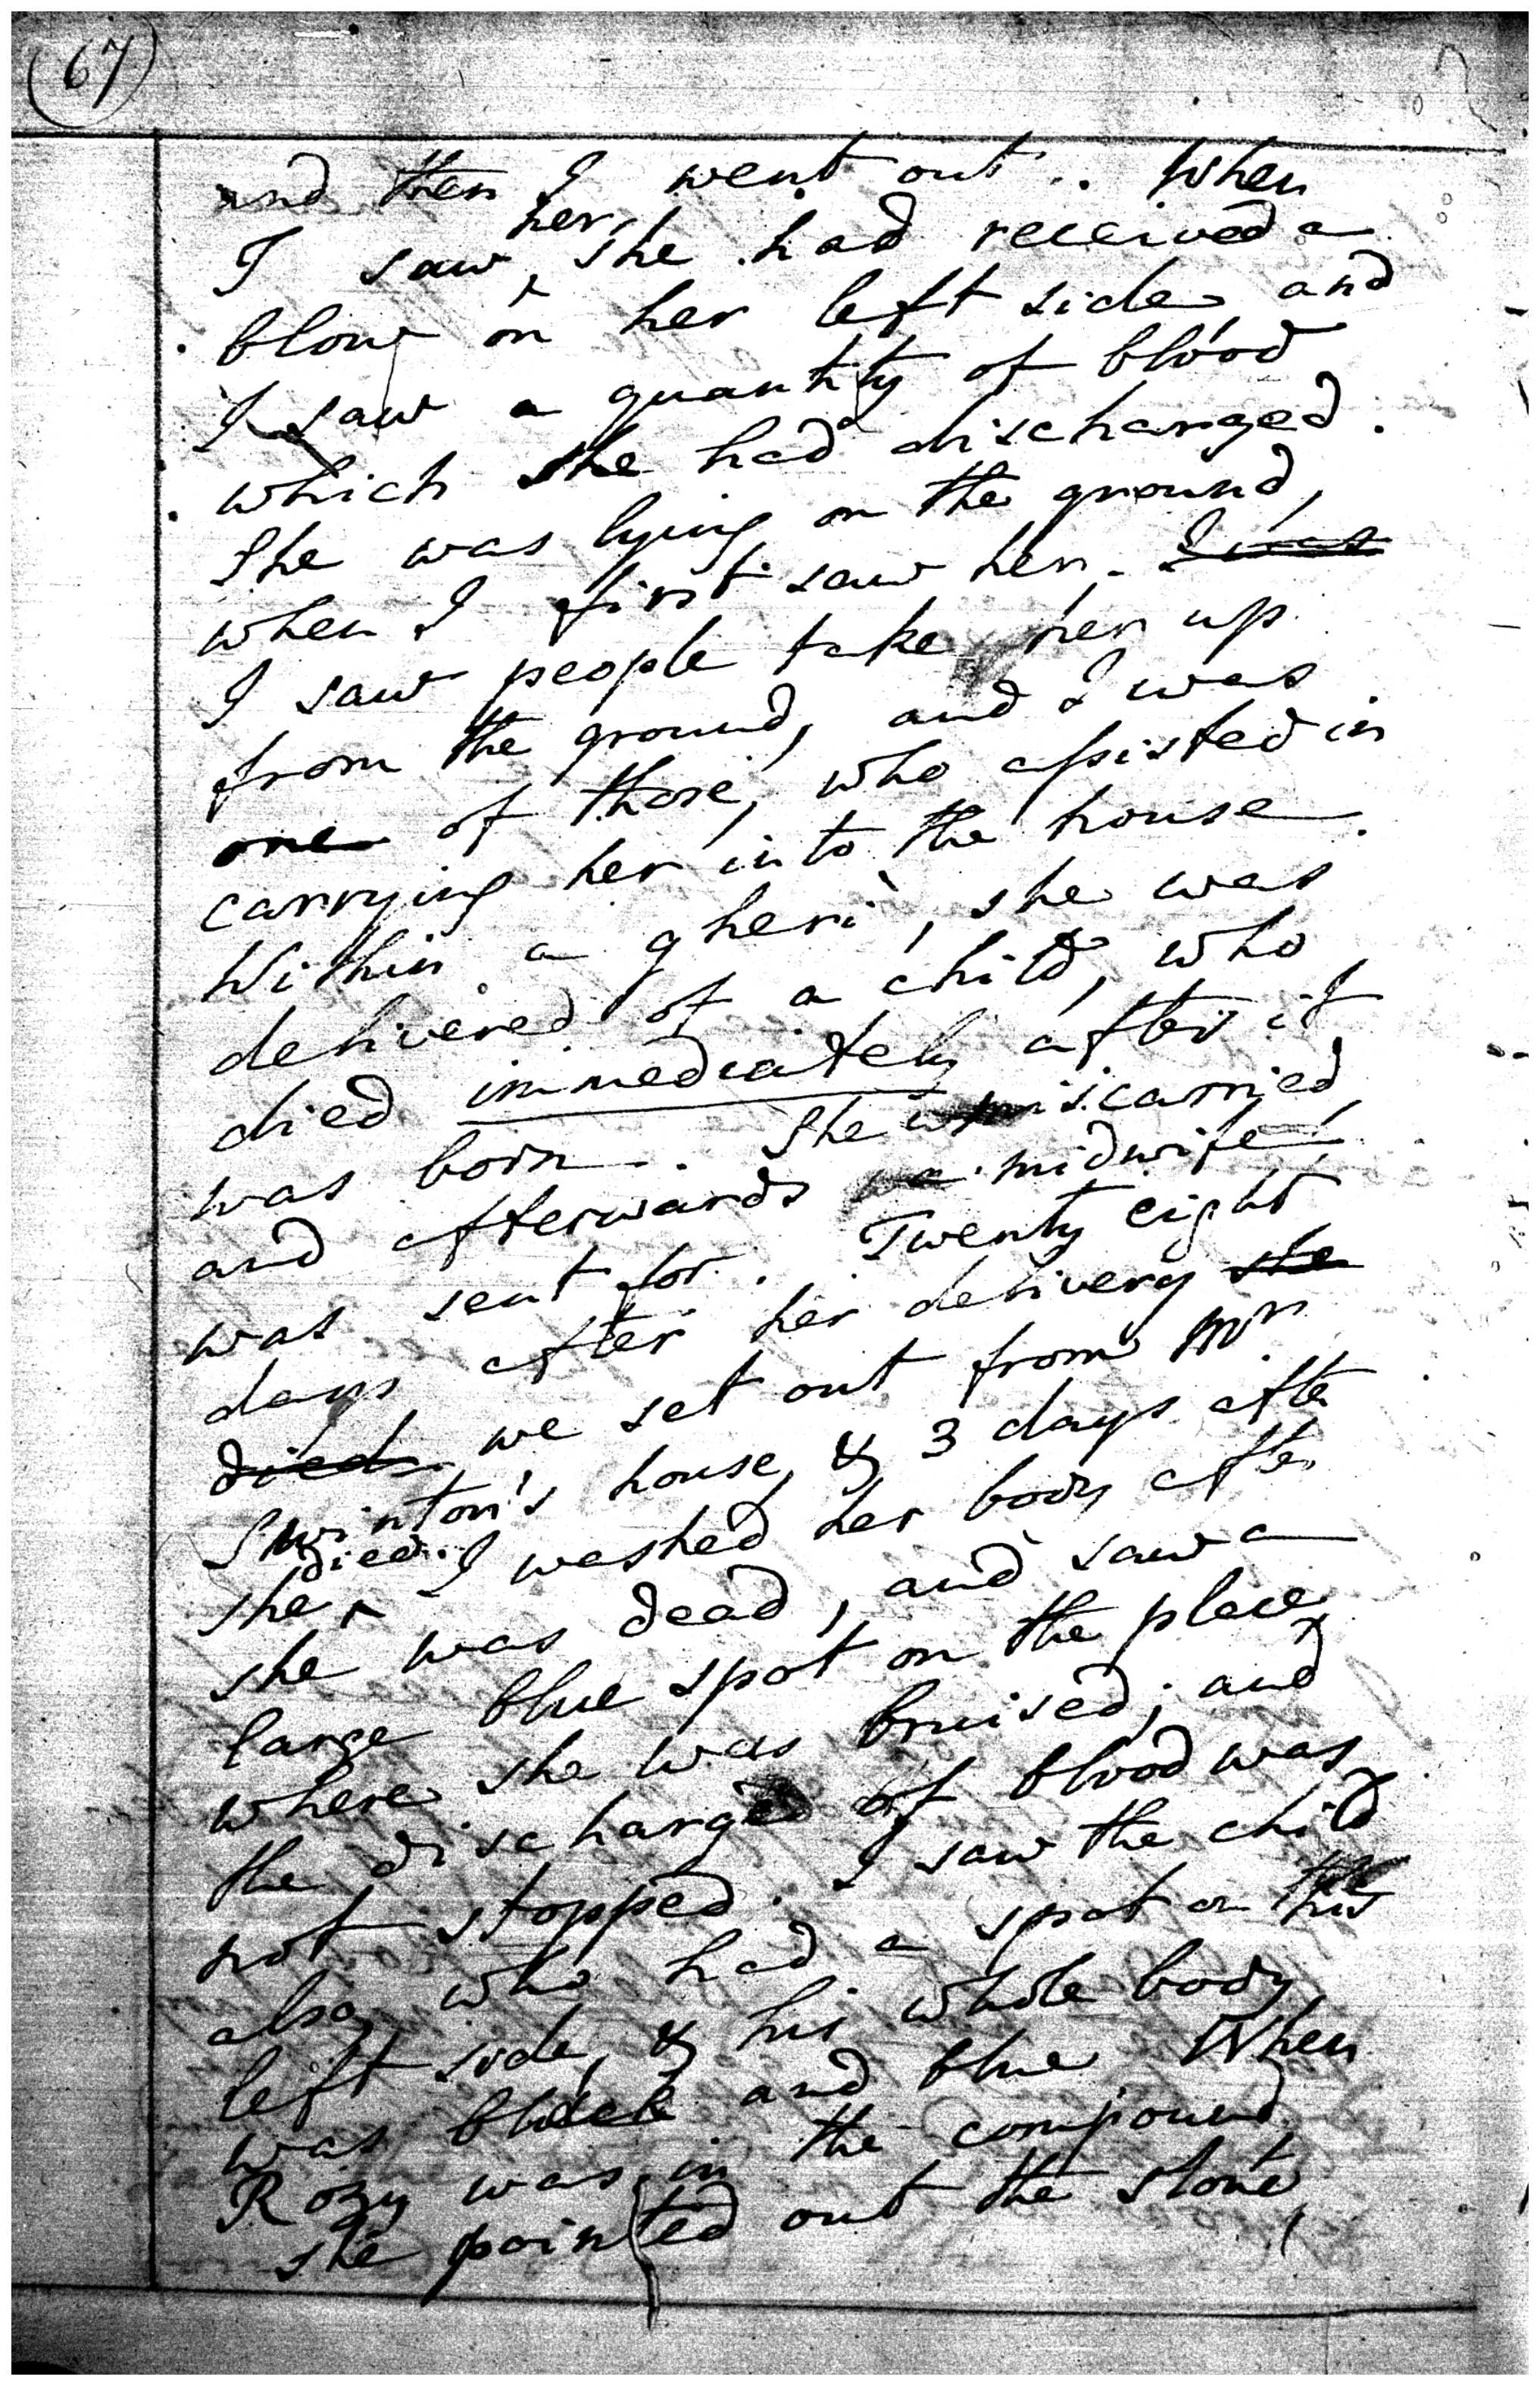 (67)
and then I went out. When
I saw her, she had received a
blow on her left side, and
I saw a quantity of blood
which she had discharged.
She was lying on the ground,
when I first saw her. I was
I saw people take her up
from the ground, and I was
one of those, who assisted in
carrying her into the house.
Within a gheri, she was
delivered of a child, who
died immediately after it
was born. She miscarried,
and afterwards a midwife
was sent for. Twenty eight
days after her delivery she
died we set out from Mr
Swinton's house, & 3 days after
she died. I washed her body after
she was dead, and saw a
large blue spot on the place
where she was bruised; and
the discharge of blood was
not stopped. I saw the child
also, who had a spot on his
left side, & his whole body
was black and blue. When
Rozy was in the compound,
she pointed out the stone